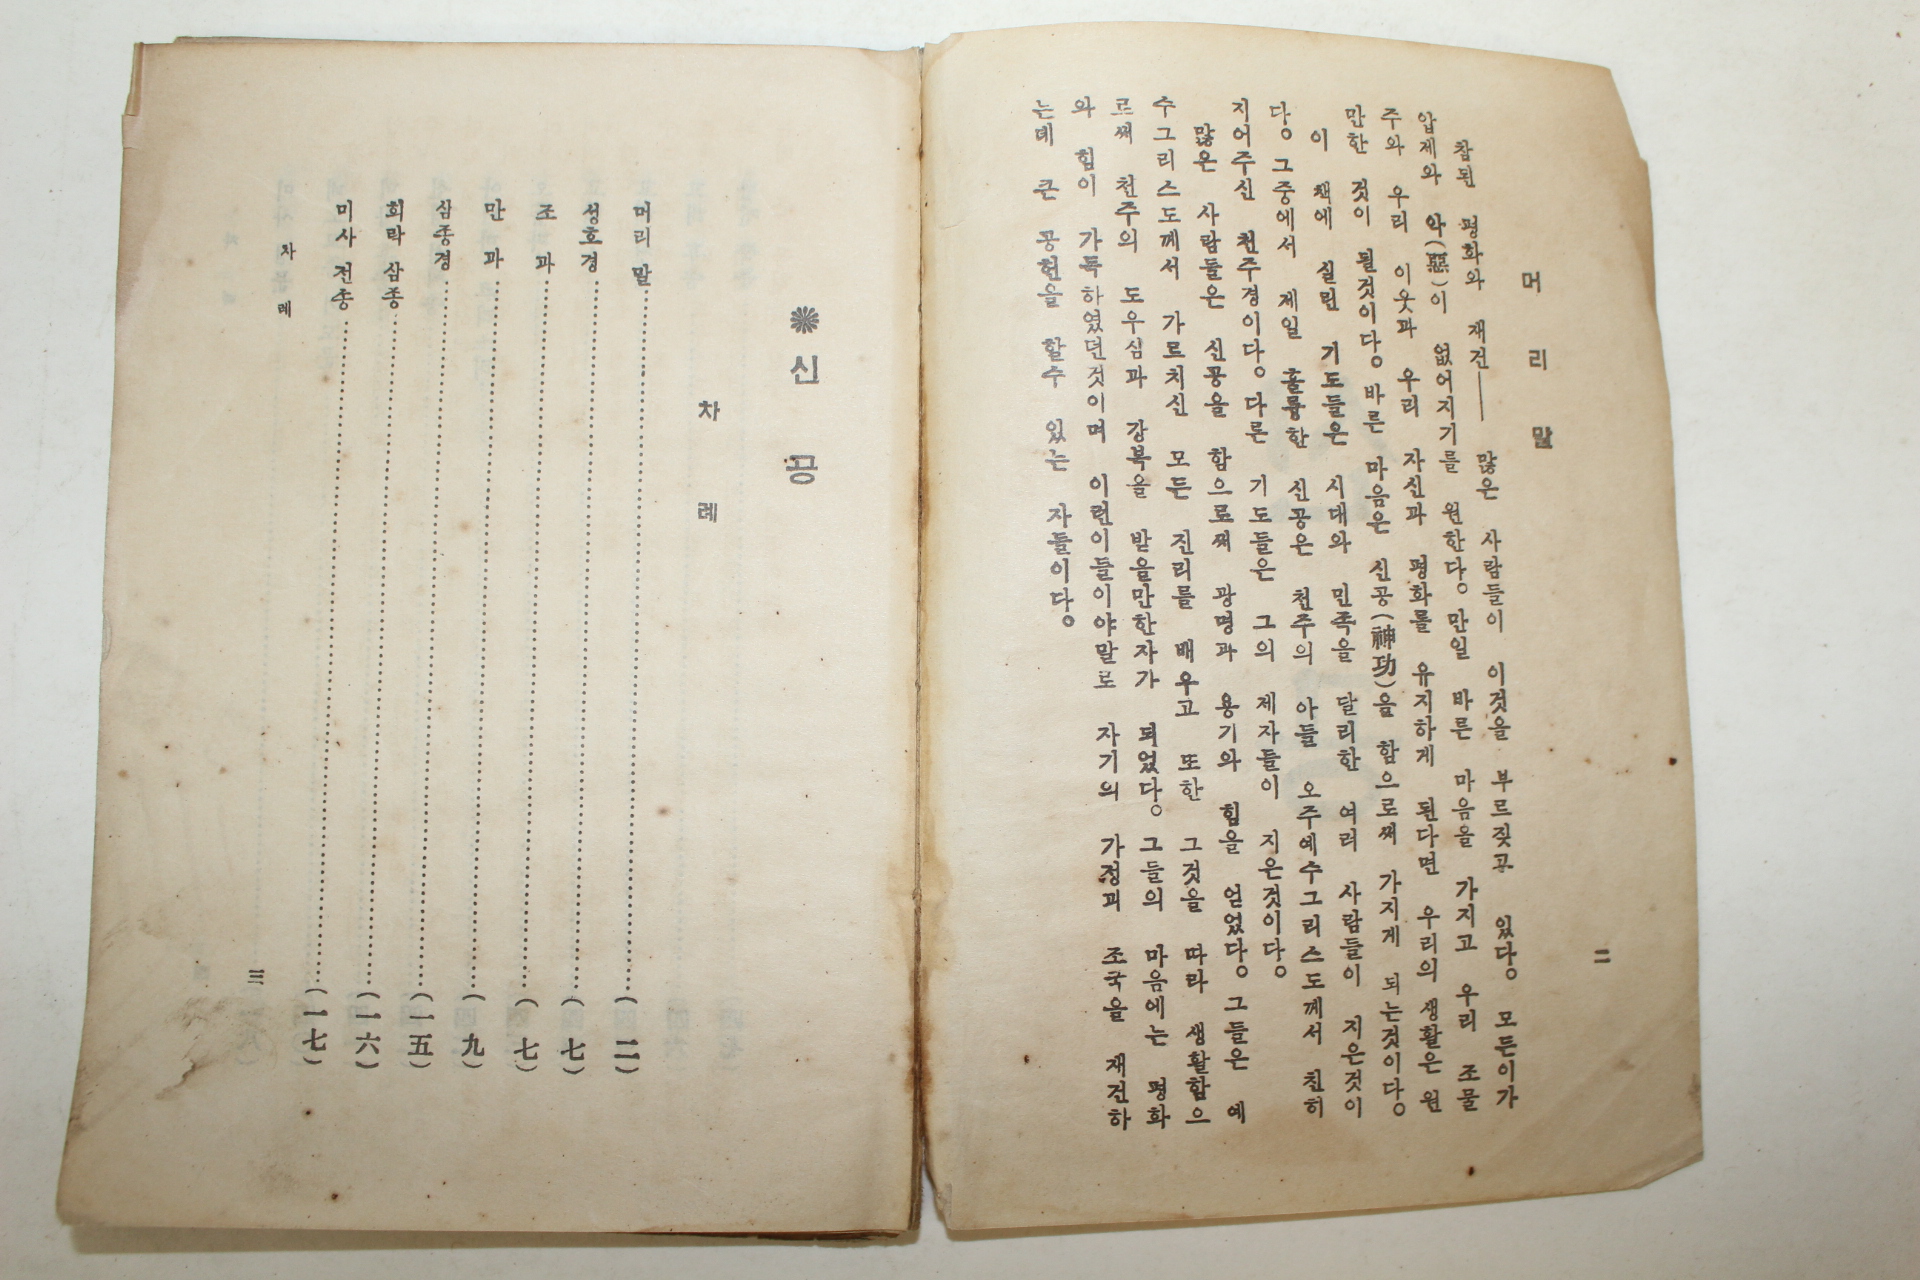 二
머리말
참된 평화와 재건── 많은 사람들이 이것을 부르짖고 있다。 모든이가
압제와 악(惡)이 없어지기를 원한다。 만일 바른 마음을 가지고 우리 조물
주와 우리 이웃과 우리 자신과 평화를 유지하게 된다면 우리의 생활은 원
만한 것이 될것이다。 바른 마음은 신공(神功)을 함으로써 가지게 되는것이다。
이 책에 실린 기도들은 시대와 민족을 달리한 여러 사람들이 지은것이
다。 그중에서 제일 훌륭한 신공은 천주의 아들 오주예수그리스도께서 친히
지어주신 천주경이다。 다른 기도들은 그의 제자들이 지은것이다。
많은 사람들은 신공을 함으로써 광명과 용기와 힘을 얻었다。 그들은 예
수그리스도께서 가르치신 모든 진리를 배우고 또한 그것을 따라 생활함으
로써 천주의 도우심과 강복을 받을만한자가 되었다。 그들의 마음에는 평화
와 힘이 가득하였던것이며 이런이들이야말로 자기의 가정과 조국을 재건하
는데 큰 공헌을 할수 있는 자들이다。
신공
차례
머리말……(二)
성호경……(七)
조과……(七)
만과……(九)
삼종경……(一五)
희락 삼종……(一六)
미사 전종……(一七)
차례
三